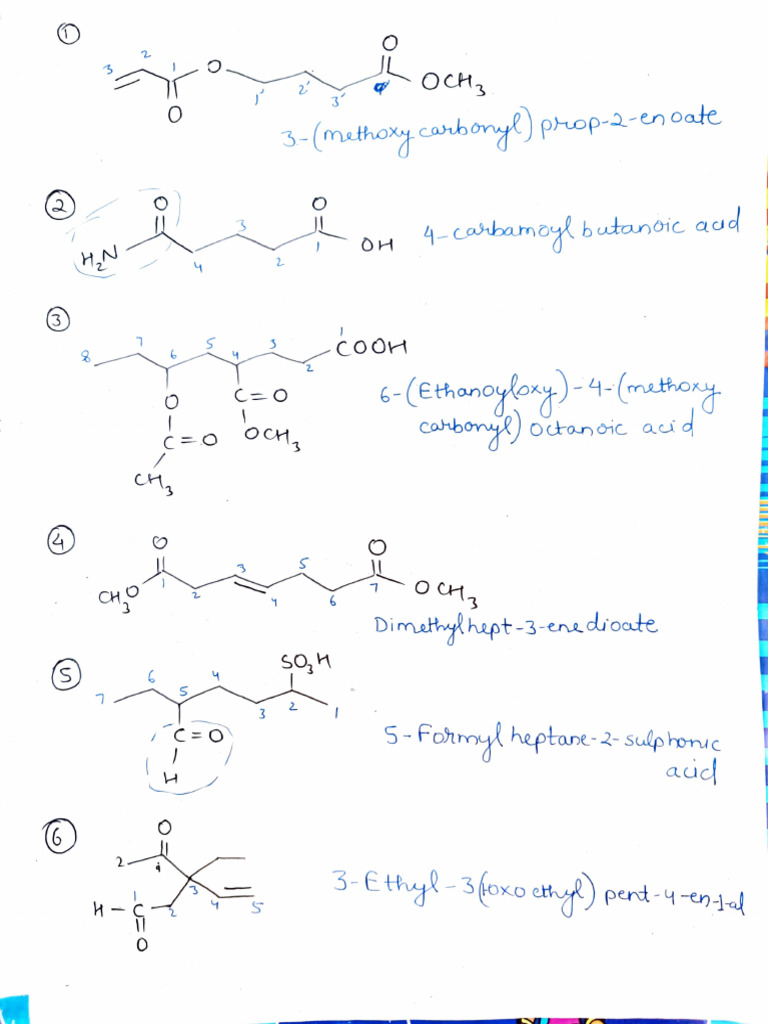 ①
3 2 1 O O
O 1' 2' 3' 4' OCH3
3-(methoxy carbonyl) prop-2-enoate
②
O O
H2N 4 3 2 1 OH
4-carbamoyl butanoic acid
③
8 7 6 5 4 3 2 1 COOH
O C=O
C=O OCH3
CH3
6-(Ethanoyloxy)-4-(methoxy
carbonyl) octanoic acid
④
O O
CH3O 1 2 3 4 5 6 7 OCH3
Dimethylhept-3-enedioate
⑤
SO3H
7 6 5 4 3 2 1
C=O
H
5-Formyl heptane-2-sulphonic
acid
⑥
O
2 1
H-C 1 2 3 4 5
O
3-Ethyl-3(1oxo ethyl) pent-4-en-1-al